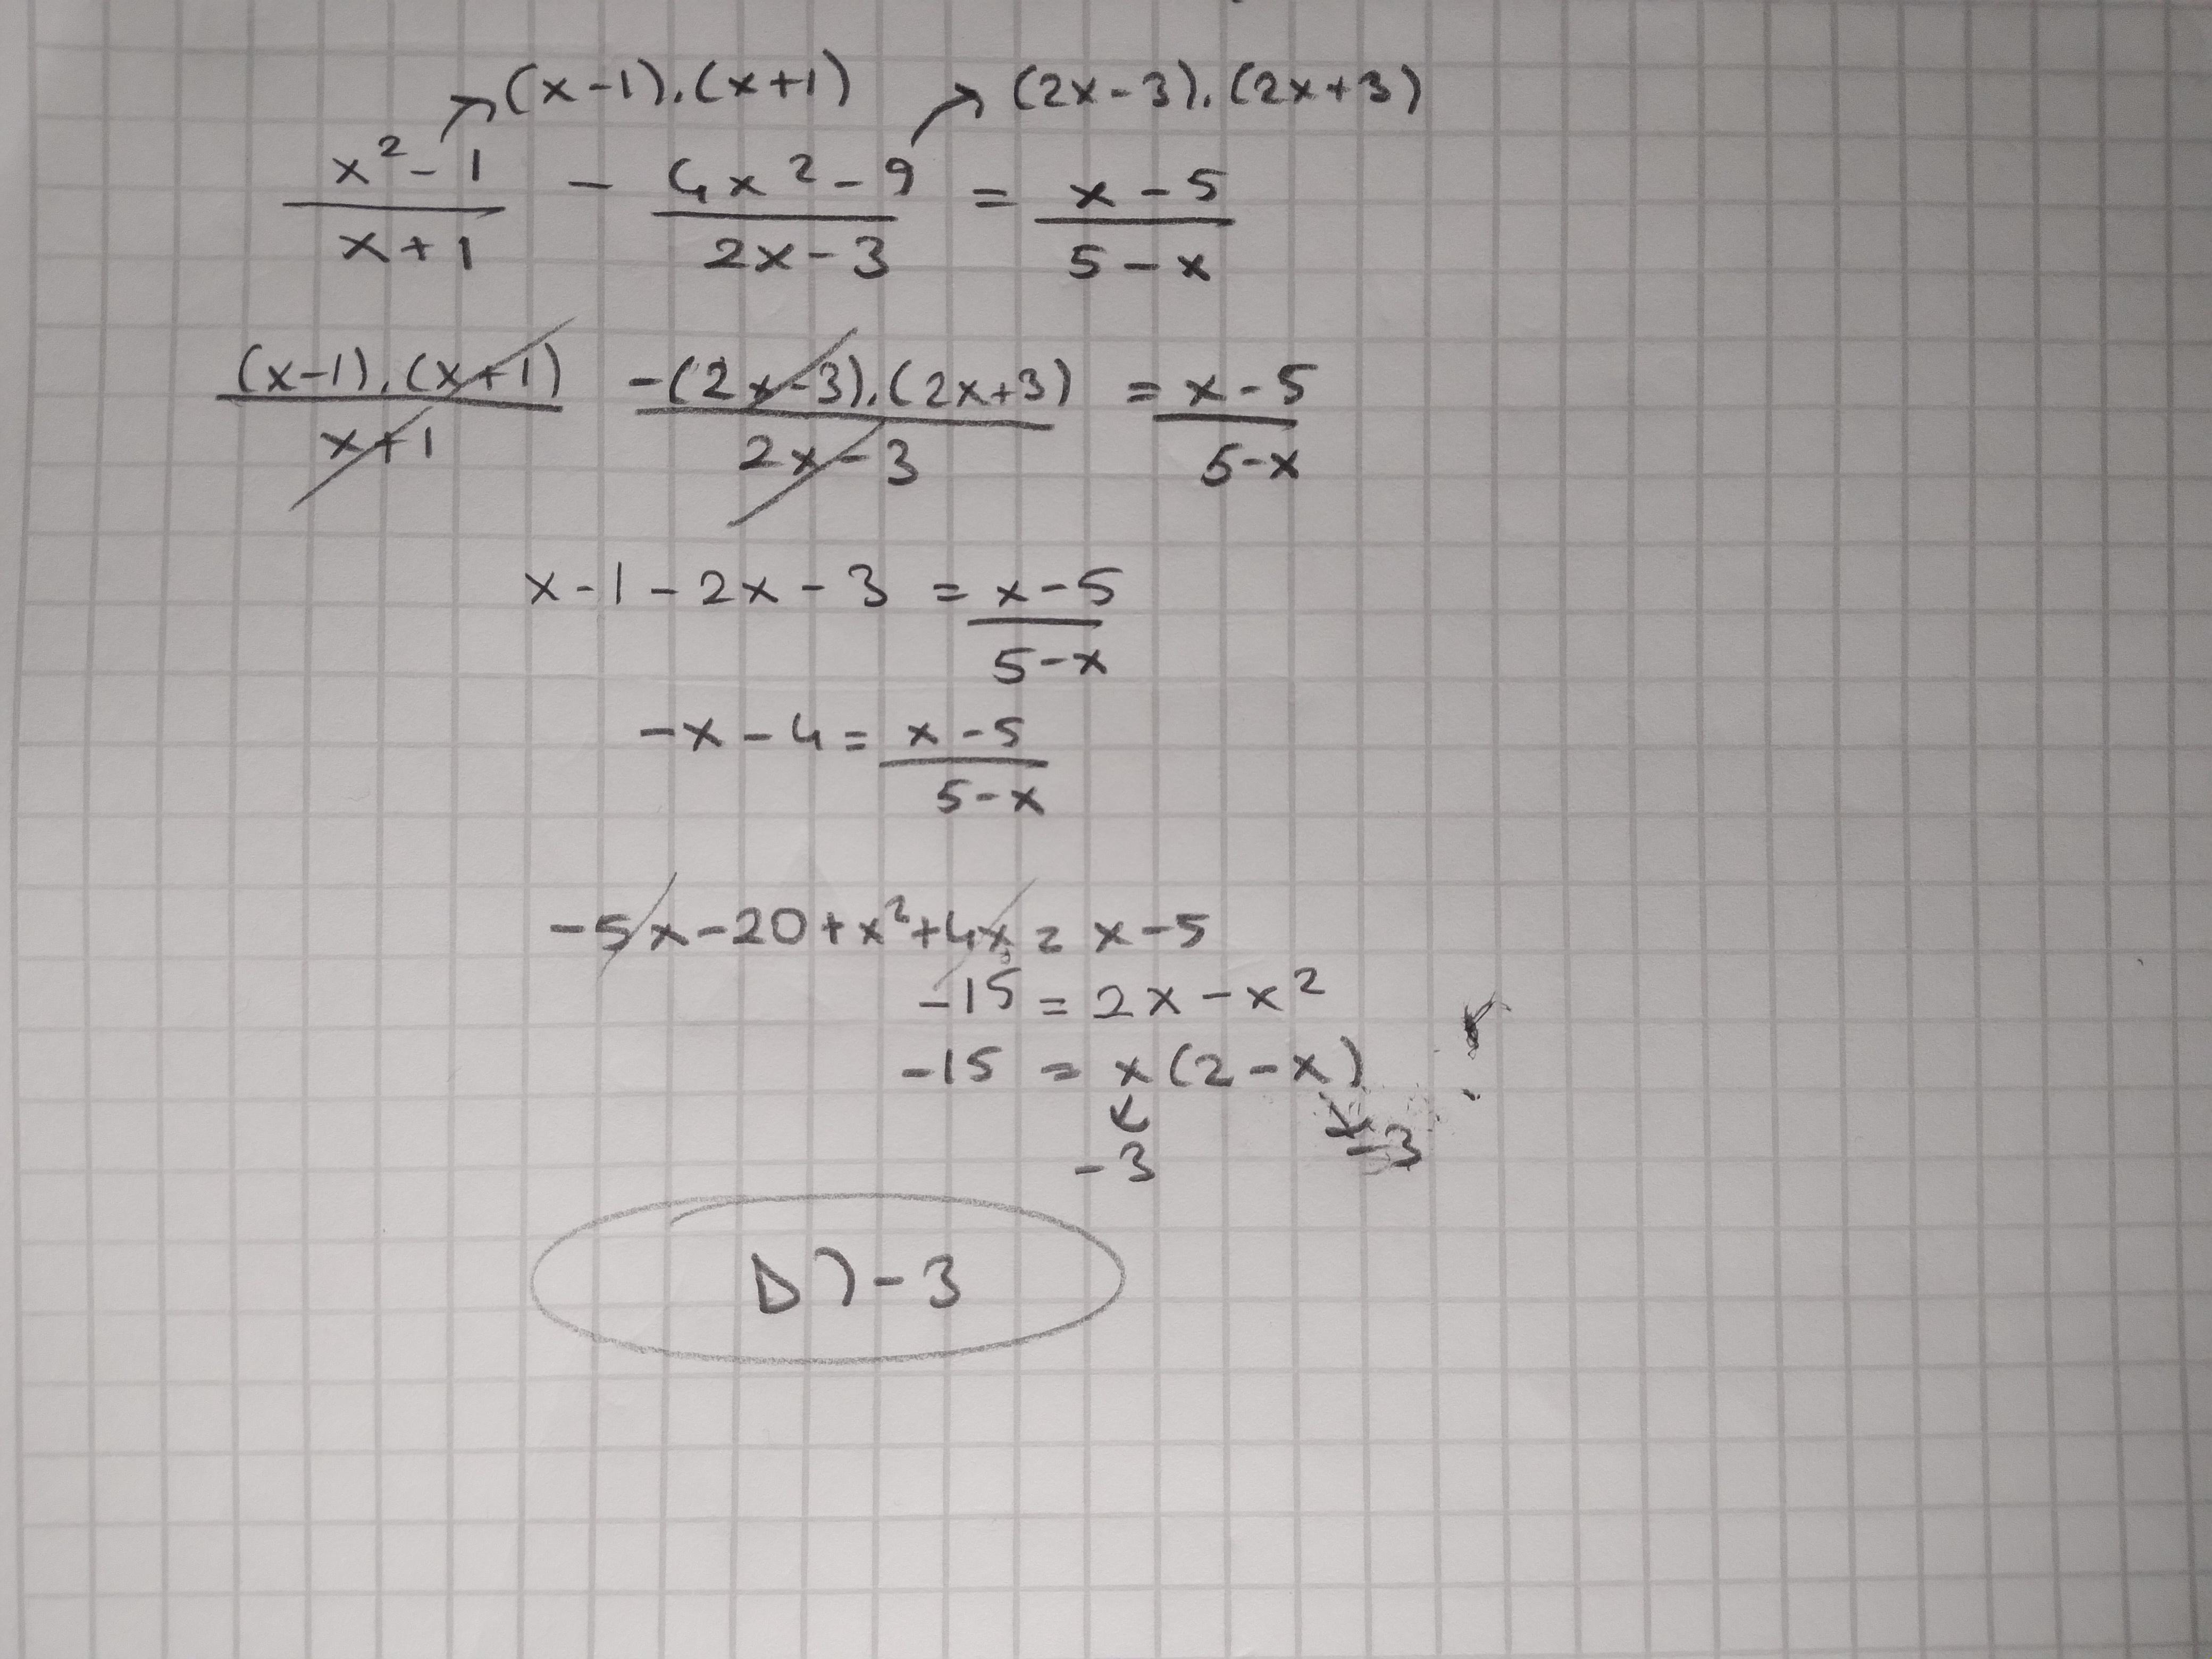 (x-1).(x+1) (2x-3).(2x+3)
x²-1/x+1 - 4x²-9/2x-3 = x-5/5-x
(x-1).(x+1)/x+1 -(2x-3).(2x+3)/2x-3 = x-5/5-x
x-1-2x-3 = x-5/5-x
-x-4 = x-5/5-x
-5x-20+x²+4x = x-5
-15 = 2x-x²
-15 = x(2-x)
-3 -3
D)-3